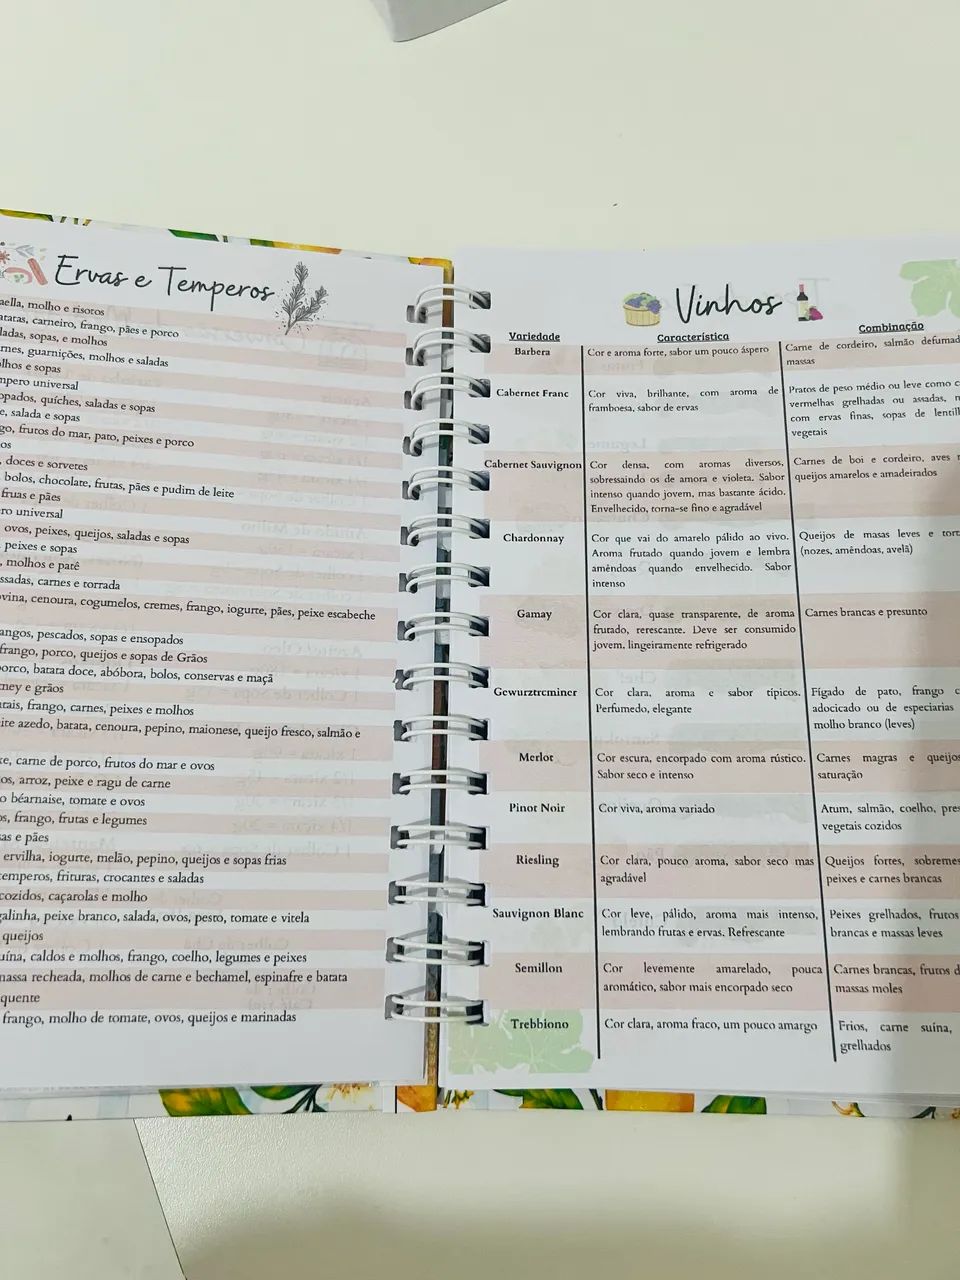 Ervas e Temperos
molho e risotos
carneiro, frango, pães e porco
sopas, e molhos
guarnições, molhos e saladas
e sopas
universal
quíches, saladas e sopas
salada e sopas
frutos do mar, pato, peixes e porco
doces e sorvetes
bolos, chocolate, frutas, pães e pudim de leite
fruas e pães
universal
ovos, peixes, queijos, saladas e sopas
peixes e sopas
molhos e patê
carnes e torrada
cenoura, cogumelos, cremes, frango, iogurte, pães, peixe escabeche
pescados, sopas e ensopados
frango, porco, queijos e sopas de Grãos
batata doce, abóbora, bolos, conservas e maçã
e grãos
frango, carnes, peixes e molhos
azedo, batata, cenoura, pepino, maionese, queijo fresco, salmão e
carne de porco, frutos do mar e ovos
arroz, peixe e ragu de carne
béarnaise, tomate e ovos
frango, frutas e legumes
e pães
ervilha, iogurte, melão, pepino, queijos e sopas frias
temperos, frituras, crocantes e saladas
cozidos, caçarolas e molho
galinha, peixe branco, salada, ovos, pesto, tomate e vitela
queijos
caldos e molhos, frango, coelho, legumes e peixes
massa recheada, molhos de carne e bechamel, espinafre e batata
quente
frango, molho de tomate, ovos, queijos e marinadas
Vinhos
Variedade Característica Combinação
Barbera Cor e aroma forte, sabor um pouco áspero Carne de cordeiro, salmão
massas
Cabernet Franc Cor viva, brilhante, com aroma de Pratos de peso médio ou leve como
framboesa, sabor de ervas vermelhas grelhadas ou assadas,
com ervas finas, sopas de
vegetais
Cabernet Sauvignon Cor densa, com aromas diversos, Carnes de boi e cordeiro, aves
sobressaindo os de amora e violeta. Sabor queijos amarelos e amadeirados
intenso quando jovem, mas bastante ácido.
Envelhecido, torna-se fino e agradável
Chardonnay Cor que vai do amarelo pálido ao vivo. Queijos de masas leves e
Aroma frutado quando jovem e lembra (nozes, amêndoas, avelã)
amêndoas quando envelhecido. Sabor
intenso
Gamay Cor clara, quase transparente, de aroma Carnes brancas e presunto
frutado, rerescante. Deve ser consumido
jovem, lingeiramente refrigerado
Gewurztreminer Cor clara, aroma e sabor típicos. Fígado de pato, frango
Perfumedo, elegante adocicado ou de especiarias
molho branco (leves)
Merlot Cor escura, encorpado com aroma rústico. Carnes magras e queijos
Sabor seco e intenso saturação
Pinot Noir Cor viva, aroma variado Atum, salmão, coelho,
vegetais cozidos
Riesling Cor clara, pouco aroma, sabor seco mas Queijos fortes,
agradável peixes e carnes brancas
Sauvignon Blanc Cor leve, pálido, aroma mais intenso, Peixes grelhados, frutos
lembrando frutas e ervas. Refrescante brancas e massas leves
Semillon Cor levemente amarelado, pouca Carnes brancas, frutos
aromático, sabor mais encorpado seco massas moles
Trebbiono Cor clara, aroma fraco, um pouco amargo Frios, carne suína,
grelhados